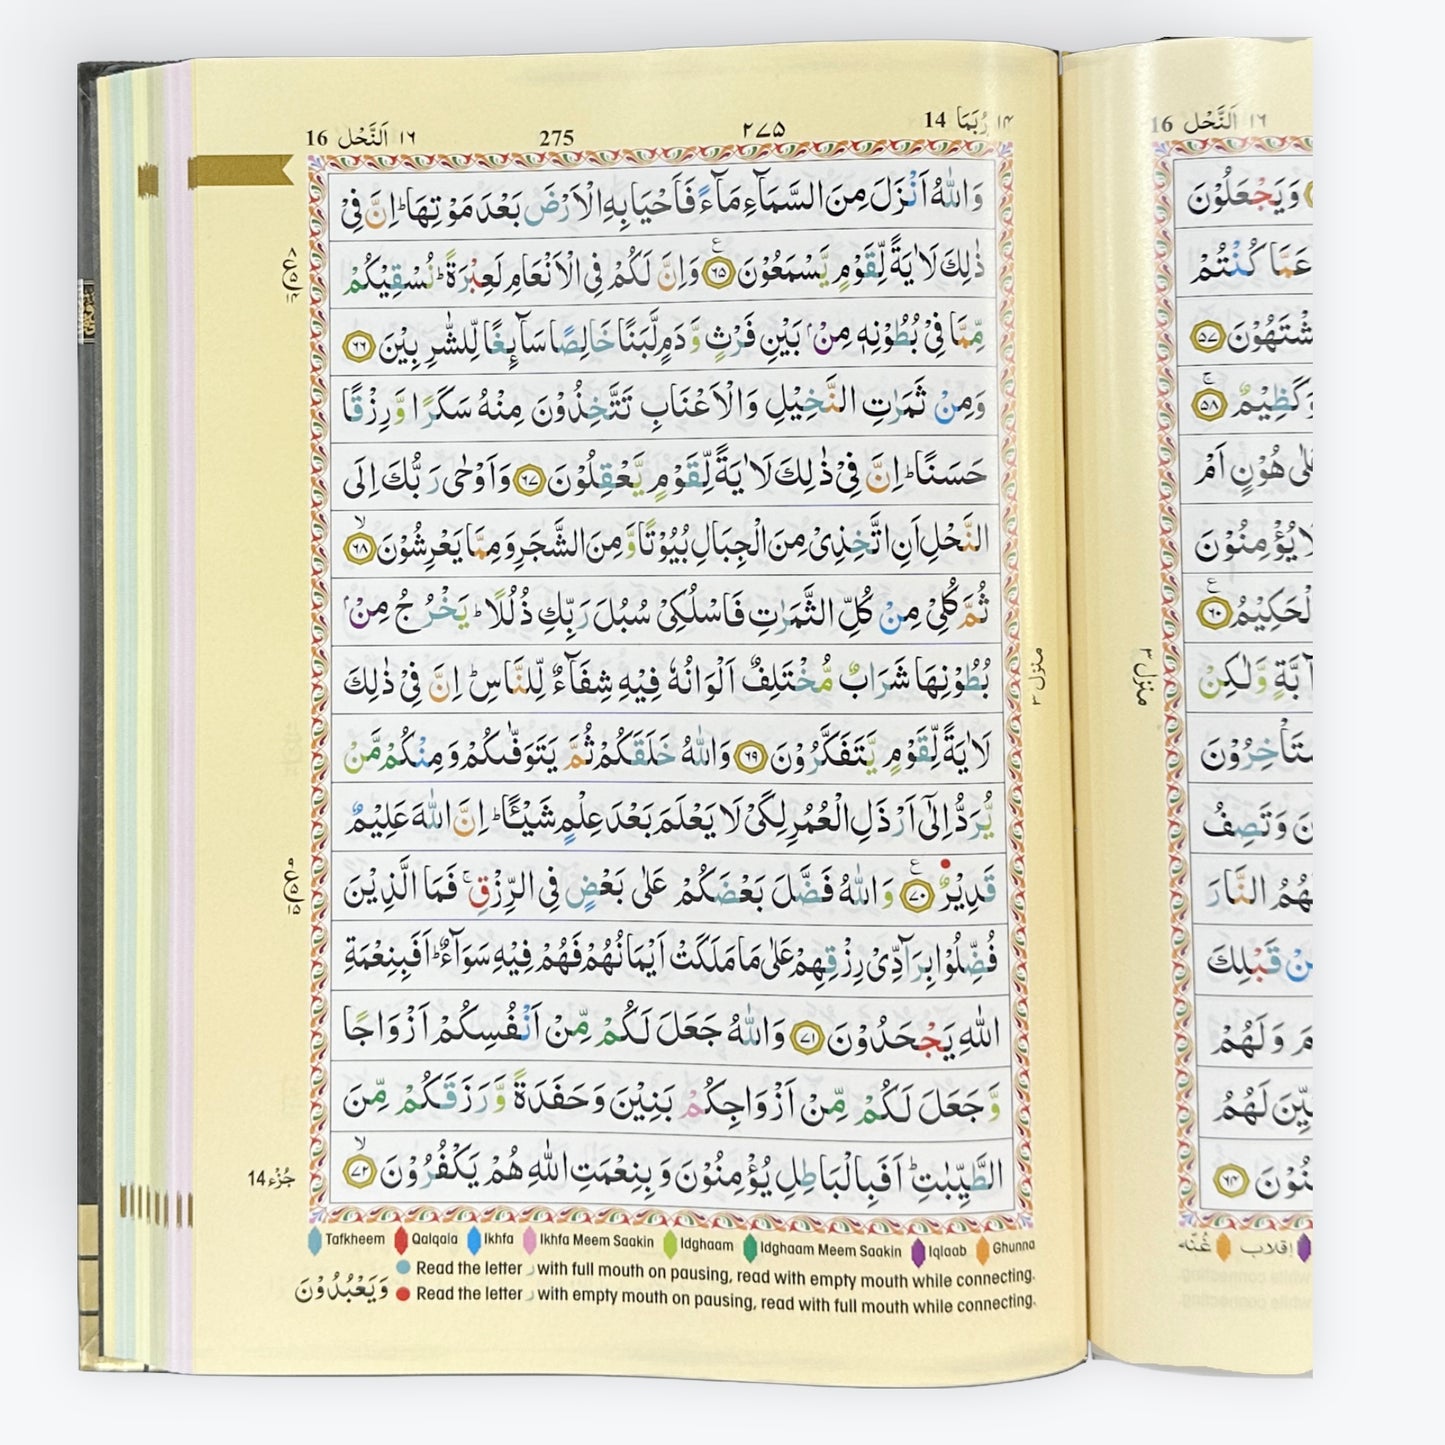 16 اَلنَّحْل ١٦
275
٢٧٥
14 رُبَمَا ١٤
وَاللّٰهُ اَنْزَلَ مِنَ السَّمَآءِ مَآءً فَاَحْيَا بِهِ الْاَرْضَ بَعْدَ مَوْتِهَا ؕ اِنَّ فِيْ
ذٰلِكَ لَاٰيَةً لِّقَوْمٍ يَّسْمَعُوْنَ ۶۵ وَاِنَّ لَكُمْ فِى الْاَنْعَامِ لَعِبْرَةً ؕ نُسْقِيْكُمْ
مِّمَّا فِيْ بُطُوْنِهٖ مِنْۢ بَيْنِ فَرْثٍ وَّدَمٍ لَّبَنًا خَالِصًا سَآئِغًا لِّلشّٰرِبِيْنَ ۶۶
وَمِنْ ثَمَرٰتِ النَّخِيْلِ وَالْاَعْنَابِ تَتَّخِذُوْنَ مِنْهُ سَكَرًا وَّرِزْقًا
حَسَنًا ؕ اِنَّ فِيْ ذٰلِكَ لَاٰيَةً لِّقَوْمٍ يَّعْقِلُوْنَ ۶۷ وَاَوْحٰى رَبُّكَ اِلَى
النَّحْلِ اَنِ اتَّخِذِيْ مِنَ الْجِبَالِ بُيُوْتًا وَّمِنَ الشَّجَرِ وَمِمَّا يَعْرِشُوْنَ ۙ ۶۸
ثُمَّ كُلِيْ مِنْ كُلِّ الثَّمَرٰتِ فَاسْلُكِيْ سُبُلَ رَبِّكِ ذُلُلًا ؕ يَخْرُجُ مِنْۢ
بُطُوْنِهَا شَرَابٌ مُّخْتَلِفٌ اَلْوَانُهٗ فِيْهِ شِفَآءٌ لِّلنَّاسِ ؕ اِنَّ فِيْ ذٰلِكَ
لَاٰيَةً لِّقَوْمٍ يَّتَفَكَّرُوْنَ ۶۹ وَاللّٰهُ خَلَقَكُمْ ثُمَّ يَتَوَفّٰىكُمْ وَمِنْكُمْ مَّنْ
يُّرَدُّ اِلٰٓى اَرْذَلِ الْعُمُرِ لِكَيْ لَا يَعْلَمَ بَعْدَ عِلْمٍ شَيْـًٔا ؕ اِنَّ اللّٰهَ عَلِيْمٌ
قَدِيْرٌ ۷۰ وَاللّٰهُ فَضَّلَ بَعْضَكُمْ عَلٰى بَعْضٍ فِى الرِّزْقِ ۚ فَمَا الَّذِيْنَ
فُضِّلُوْا بِرَآدِّيْ رِزْقِهِمْ عَلٰى مَا مَلَكَتْ اَيْمَانُهُمْ فَهُمْ فِيْهِ سَوَآءٌ ؕ اَفَبِنِعْمَةِ
اللّٰهِ يَجْحَدُوْنَ ۷۱ وَاللّٰهُ جَعَلَ لَكُمْ مِّنْ اَنْفُسِكُمْ اَزْوَاجًا
وَّجَعَلَ لَكُمْ مِّنْ اَزْوَاجِكُمْ بَنِيْنَ وَحَفَدَةً وَّرَزَقَكُمْ مِّنَ
الطَّيِّبٰتِ ؕ اَفَبِالْبَاطِلِ يُؤْمِنُوْنَ وَبِنِعْمَتِ اللّٰهِ هُمْ يَكْفُرُوْنَ ۙ ۷۲
منزل ٣
جُزْء 14
Tafkheem Qalqala Ikhfa Ikhfa Meem Saakin Idghaam Idghaam Meem Saakin Iqlaab Ghunna
Read the letter ر with full mouth on pausing, read with empty mouth while connecting.
Read the letter ر with empty mouth on pausing, read with full mouth while connecting.
وَيَعْبُدُوْنَ
16 اَلنَّحْل ١٦
وَيَجْعَلُوْنَ
عَمَّا كُنْتُمْ
۵۷
وَكَظِيْمٌ ۵۸
هُوْنٍ اَمْ
يُؤْمِنُوْنَ
۶۰
وَّلٰكِنْ
وَتَصِفُ
النَّارَ
قَبْلِكَ
وَلَهُمْ
لَهُمُ
۶۴
منزل ٣
إقلاب غُنّه